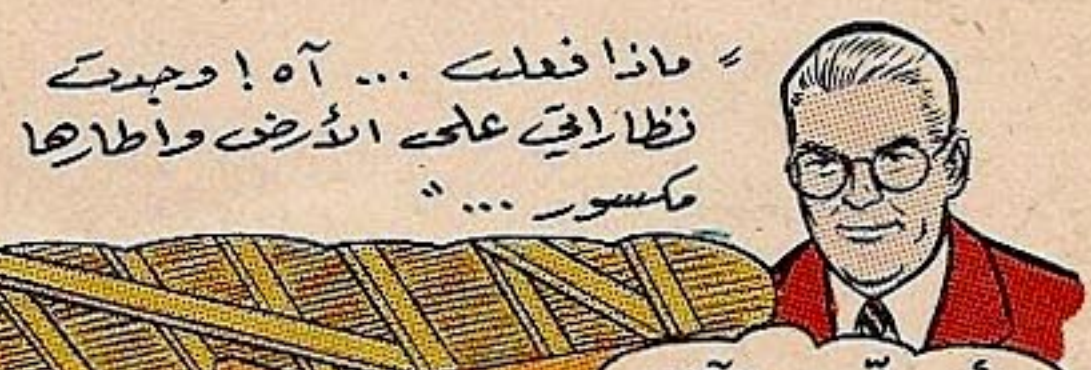 " ماذا فعلت ... آه ! وجدت
نظاراتي على الأرض واطارها
مكسور ... "